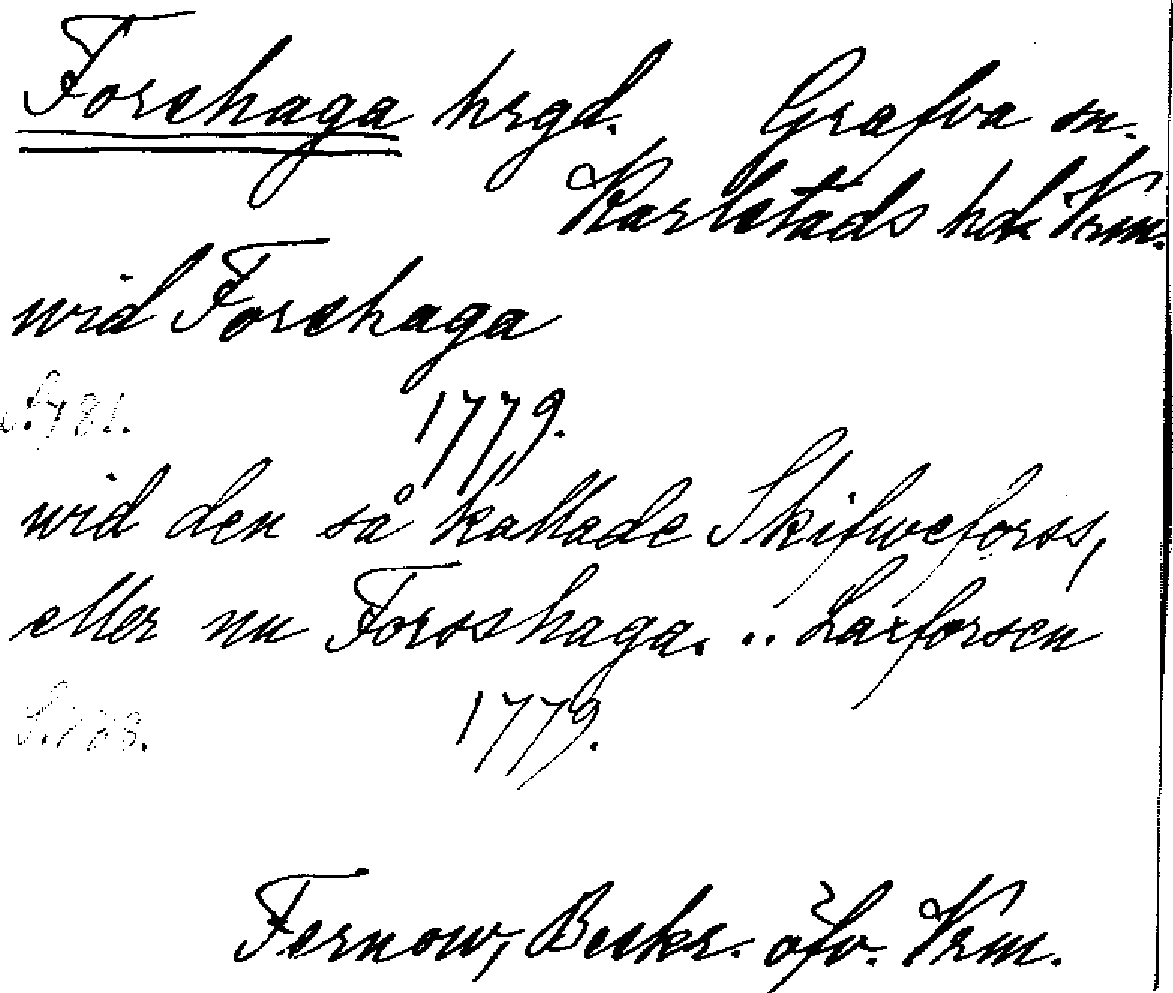 Forshaga hrgd. Grafva sn.
Karlstads hd Vrm.
wid Forshaga
S. 781. 1779.
wid den så kallade Skifweforss,
eller nu Forsshaga. .. Laxforsen
1779.
Fernow, Beskr. öfv. Vrm.